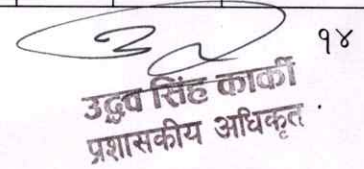 १४
उद्धव सिंह कार्की
प्रशासकीय अधिकृत